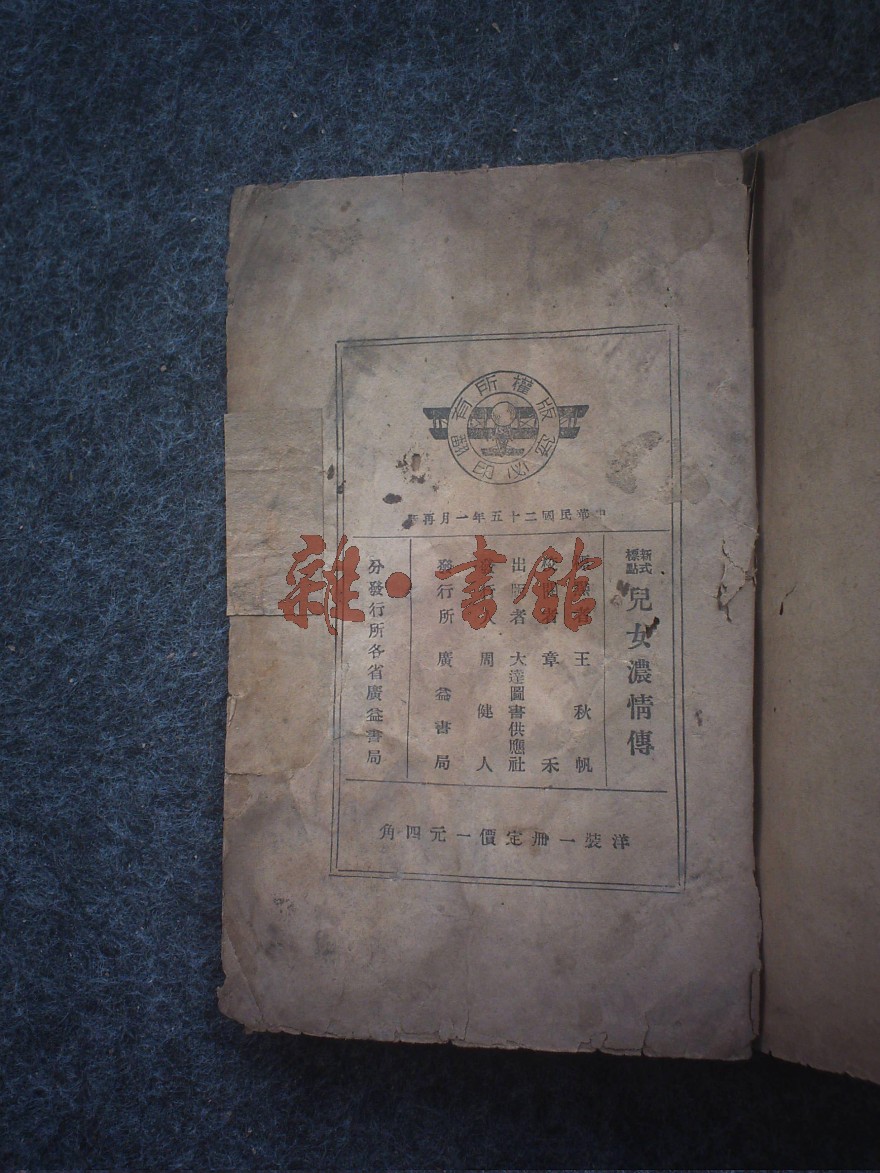 版權所有
翻印必究
中華民國二十五年一月再版
新式
標點
兒女濃情傳
者 王秋帆
者 章禾
出版者 大達圖書供應社
發行人 周健人
發行所 廣益書局
分發行所各省廣益書局
洋裝一冊定價一元四角
雜·書館